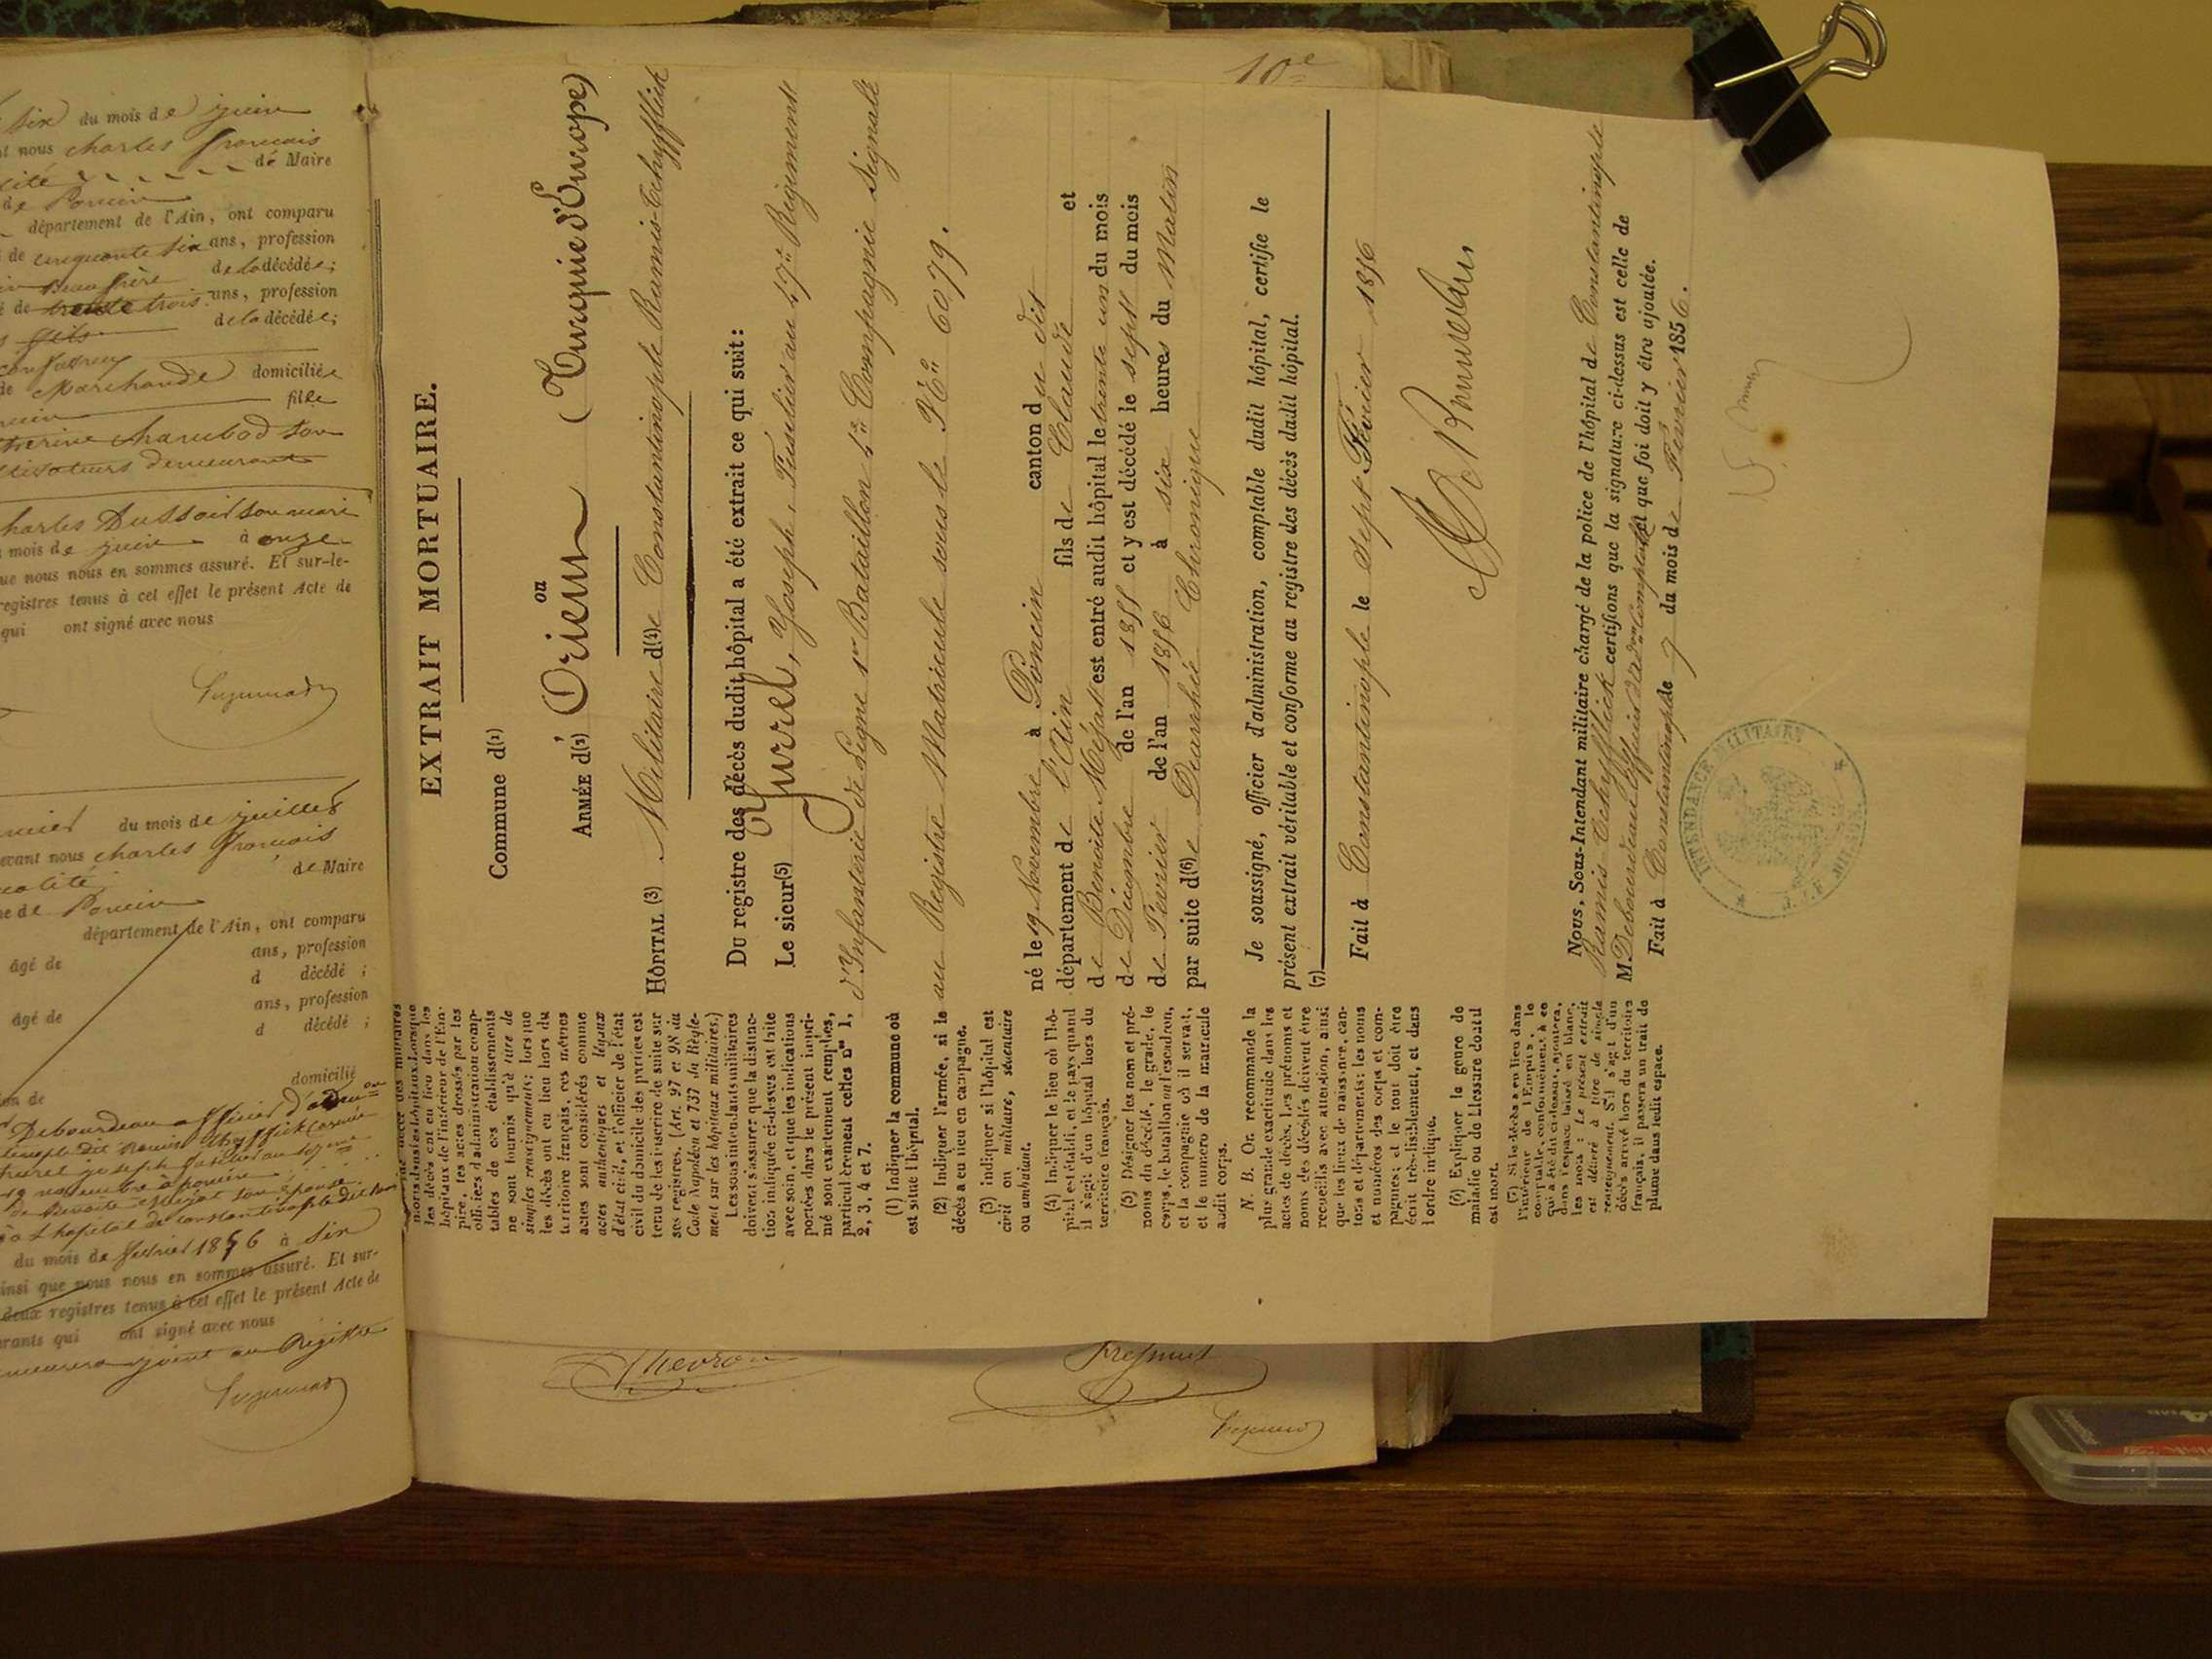 six du mois de juin
nous charles françois
de Maire
de Poncin
département de l'Ain, ont comparu
de cinquante six ans, profession
beau frère de la décédée;
de trente trois ans, profession
fils de la décédée;
de Marchande domiciliée
fille
charles Dussoit son mari
mois de juin à onze
que nous nous en sommes assuré. Et sur-le-
registres tenus à cet effet le présent Acte de
qui ont signé avec nous
du mois de juillet
devant nous charles françois
de Maire
de Poncin
département de l'Ain, ont comparu
âgé de ans, profession
d décédé ;
âgé de ans, profession
d décédé ;
domicilié
de
Debourdeau officier d'adon
joseph fusilier au
19 novembre à poncin
de Benoite Méjat son épouse
à l'hopital de constantinople dit
du mois de fevrier 1856 à six
ainsi que nous nous en sommes assuré. Et sur-
deux registres tenus à cet effet le présent Acte de
qui ont signé avec nous
joint au Registre
10e
EXTRAIT MORTUAIRE.
Commune d(1)
ou
ARMÉE d'(2) Orient (Turquie d'Europe)
HÔPITAL (3) Militaire d(4)e Constantinople Ramis-Tchyfflick
Du registre des décès dudit hôpital a été extrait ce qui suit :
Le sieur(5) Jurrel, Joseph, Fusilier au 57e Régiment
d'Infanterie de Ligne 1er Bataillon 5e Compagnie Signalé
au Registre Matricule sous le No 6079.
né le 19 Novembre à Poncin canton du dit
département de l'Ain fils de Claude et
de Benoite Méjat est entré audit hôpital le trente un du mois
de Décembre de l'an 1855 et y est décédé le sept du mois
de Fevrier de l'an 1856 à six heures du Matin
par suite d(6)e Diarrhée Chronique
Je soussigné, officier d'administration, comptable dudit hôpital, certifie le
présent extrait véritable et conforme au registre des décès dudit hôpital.
(7)
Fait à Constantinople le Sept Février 1856
Nous, Sous-Intendant militaire chargé de la police de l'hôpital de Constantinople
Ramis Tchyfflick certifions que la signature ci-dessus est celle de
M. Debourdeau officier d'Adon Comptable et que foi doit y être ajoutée.
Fait à Constantinople 7 du mois de Février 1856.
INTENDANCE MILITAIRE
les décès ont eu lieu dans les
hôpitaux de l'intérieur de l'Em-
pire, les actes dressés par les
officiers d'administration comp-
tables de ces établissements
ne sont fournis qu'à titre de
simples renseignements; lorsque
les décès ont eu lieu hors du
territoire français, ces mêmes
actes sont considérés comme
actes authentiques et légaux
d'état civil, et l'officier de l'état
civil du domicile des parties est
tenu de les inscrire de suite sur
ses registres. (Art. 97 et 98 du
Code Napoléon et 737 du Règle-
ment sur les hôpitaux militaires.)
Les sous-intendants militaires
doivent s'assurer que la distinc-
tion indiquée ci-dessus est faite
avec soin, et que les indications
portées dans le présent impri-
mé sont exactement remplies,
particulièrement celles nos 1,
2, 3, 4 et 7.
(1) Indiquer la commune où
est situé l'hôpital.
(2) Indiquer l'armée, si le
décès a eu lieu en campagne.
(3) Indiquer si l'hôpital est
civil ou militaire, sédentaire
ou ambulant.
(4) Indiquer le lieu où l'hô-
pital est établi, et le pays quand
il s'agit d'un hôpital hors du
territoire français.
(5) Désigner les nom et pré-
noms du décédé, le grade, le
corps, le bataillon ou l'escadron,
et la compagnie où il servait,
et le numéro de la matricule
audit corps.
N. B. On recommande la
plus grande exactitude dans les
actes de décès. Les prénoms et
noms des décédés doivent être
recueillis avec attention, ainsi
que les lieux de naissance, can-
tons et départements; les noms
et numéros des corps et com-
pagnies; et le tout doit être
écrit très-lisiblement, et dans
l'ordre indiqué.
(6) Expliquer le genre de
maladie ou de blessure dont il
est mort.
(7) Si le décès a eu lieu dans
l'intérieur de l'Empire, le
comptable, conformément à ce
qui a été dit ci-dessus, ajoutera,
dans l'espace laissé en blanc,
les mots : Le présent extrait
est délivré à titre de simple
renseignement. S'il s'agit d'un
décès arrivé hors du territoire
français, il passera un trait de
plume dans ledit espace.
Chevron